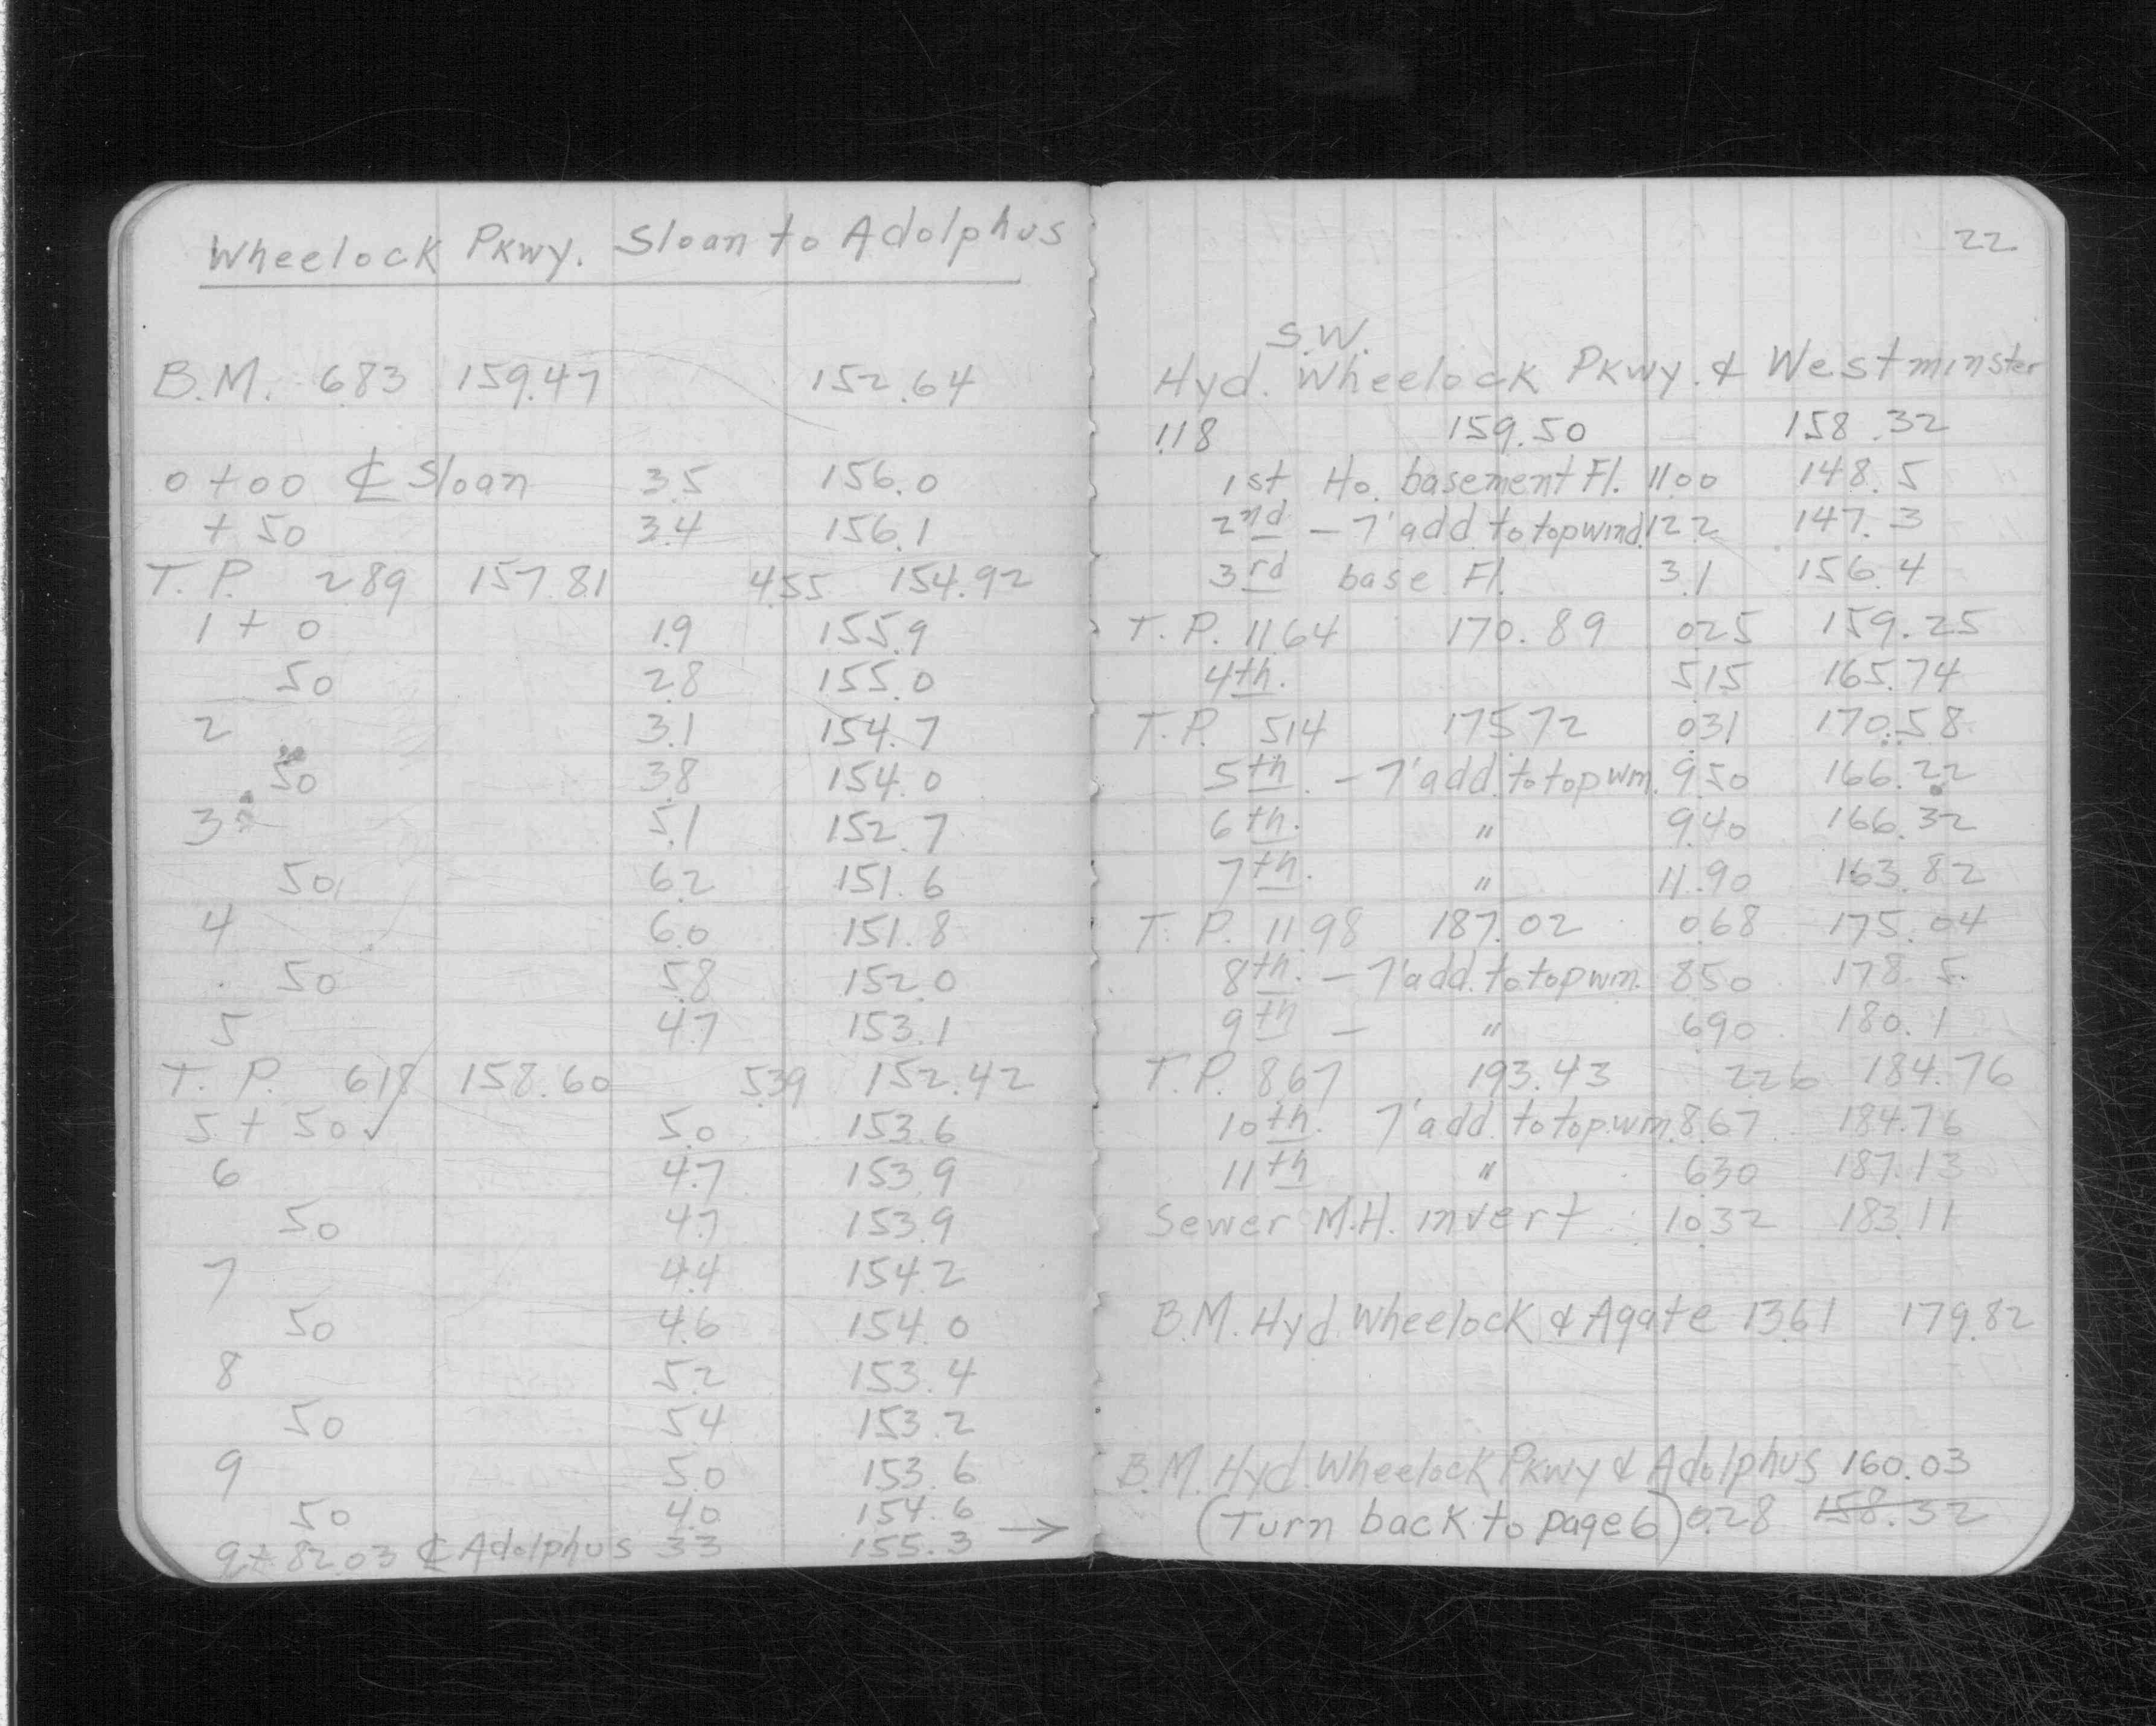 Wheelock Pkwy. Sloan to Adolphus
B.M. 6.83 159.47 152.64
0+00 ℄ Sloan 3.5 156.0
+50 3.4 156.1
T.P. 2.89 157.81 4.55 154.92
1+0 1.9 155.9
50 2.8 155.0
2 3.1 154.7
50 3.8 154.0
3 5.1 152.7
50 6.2 151.6
4 6.0 151.8
50 5.8 152.0
5 4.7 153.1
T.P. 618 158.60 5.39 152.42
5+50✓ 5.0 153.6
6 4.7 153.9
50 4.7 153.9
7 4.4 154.2
50 4.6 154.0
8 5.2 153.4
50 5.4 153.2
9 5.0 153.6
50 4.0 154.6
9+82.03 ℄ Adolphus 3.3 155.3 →
22
S.W.
Hyd. Wheelock Pkwy. & Westminster
1.18 159.50 158.32
1st Ho. basement Fl. 11.00 148.5
2nd - 7' add. to top wind. 12.2 147.3
3rd base Fl. 3.1 156.4
T.P. 11.64 170.89 0.25 159.25
4th. 5.15 165.74
T.P. 5.14 175.72 0.31 170.58
5th. - 7' add. to top win. 9.50 166.22
6th. " 9.40 166.32
7th. " 11.90 163.82
T.P. 11.98 187.02 0.68 175.04
8th. - 7' add. to top win. 8.50 178.5
9th - " 6.90 180.1
T.P. 8.67 193.43 2.26 184.76
10th. 7' add. to top win. 8.67 184.76
11th " 6.30 187.13
Sewer M.H. invert 10.32 183.11
B.M. Hyd. Wheelock & Agate 13.61 179.82
B.M. Hyd. Wheelock Pkwy & Adolphus 160.03
(Turn back to page 6) 0.28 158.32